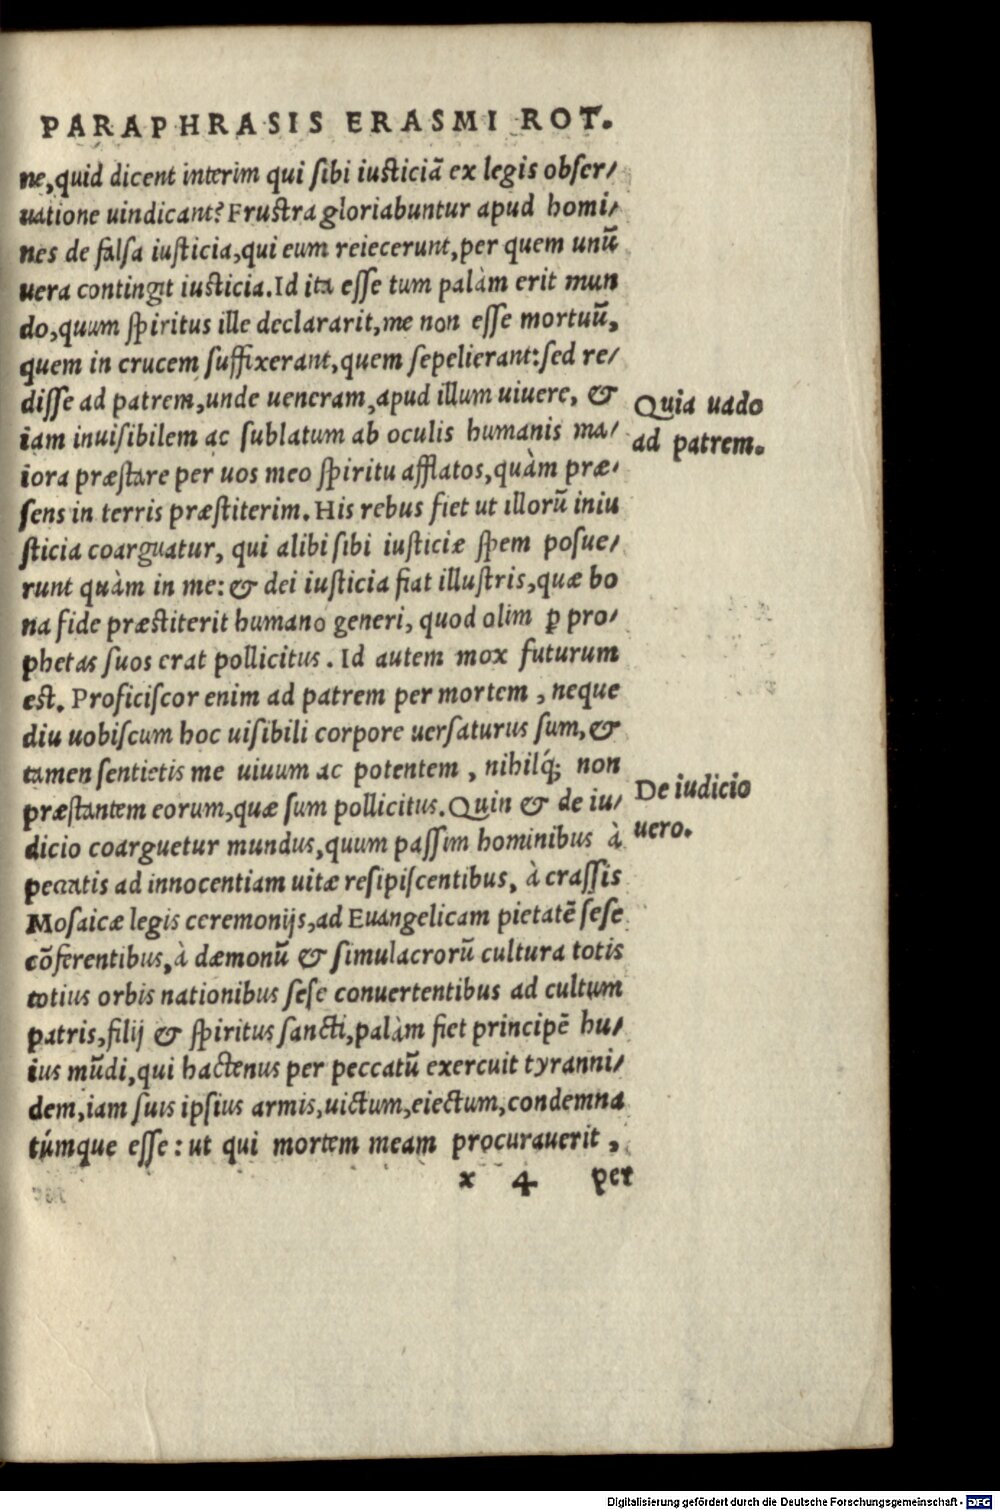 PARAPHRASIS ERASMI ROT.
ne,quid dicent interim qui sibi iusticiā ex legis obser/
uatione uindicant? Frustra gloriabuntur apud homi/
nes de falsa iusticia,qui eum reiecerunt,per quem unū
uera contingit iusticia. Id ita esse tum palàm erit mun
do,quum spiritus ille declararit,me non esse mortuū,
quem in crucem suffixerant,quem sepelierant:sed re/
disse ad patrem,unde ueneram,apud illum uiuere, &
Quia uado
ad patrem.
iam inuisibilem ac sublatum ab oculis humanis ma/
iora præstare per uos meo spiritu afflatos,quàm præ/
sens in terris præstiterim. His rebus fiet ut illorū iniu
sticia coarguatur, qui alibi sibi iusticiæ spem posue/
runt quàm in me: & dei iusticia fiat illustris,quæ bo
na fide præstiterit humano generi, quod olim ꝑ pro/
phetas suos erat pollicitus. Id autem mox futurum
est. Proficiscor enim ad patrem per mortem, neque
diu uobiscum hoc uisibili corpore uersaturus sum,&
tamen sentietis me uiuum ac potentem, nihilq́; non
præstantem eorum,quæ sum pollicitus. Quin & de iu/
De iudicio
uero.
dicio coarguetur mundus,quum passim hominibus à
peccatis ad innocentiam uitæ resipiscentibus, à crassis
Mosaicæ legis ceremonijs,ad Euangelicam pietatē sese
cōferentibus,à dæmonū & simulacrorū cultura totis
totius orbis nationibus sese conuertentibus ad cultum
patris,filij & spiritus sancti,palàm fiet principē hu/
ius mūdi,qui hactenus per peccatū exercuit tyranni/
dem,iam suis ipsius armis,uictum,eiectum,condemna
túmque esse: ut qui mortem meam procurauerit,
x 4 per
Digitalisierung gefördert durch die Deutsche Forschungsgemeinschaft - DFG